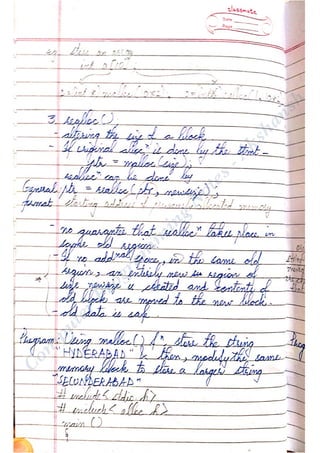 classmate
Date
Page
eg. store an array
int a[10];
3. realloc()
- altering the size of a block
- If original allocⁿ is done by the stmt -
ptr = malloc(size);
reallocⁿ can be done by
General ptr = realloc(ptr, newsize);
format starting address of previously allocated memory
- no guarantee that reallocⁿ takes place in
same old region
- If no addⁿᵃˡ space, in the same old
region, an entirely new region of
size newsize is created and contents of
old block are moved to the new block.
- old data is safe.
Program: Using malloc() fⁿ store the string
"HYDERABAD" & then, modify the same
memory block to store a larger string
"SECUNDERABAD"
# include<stdio.h>
# include<alloc.h>
main()
{